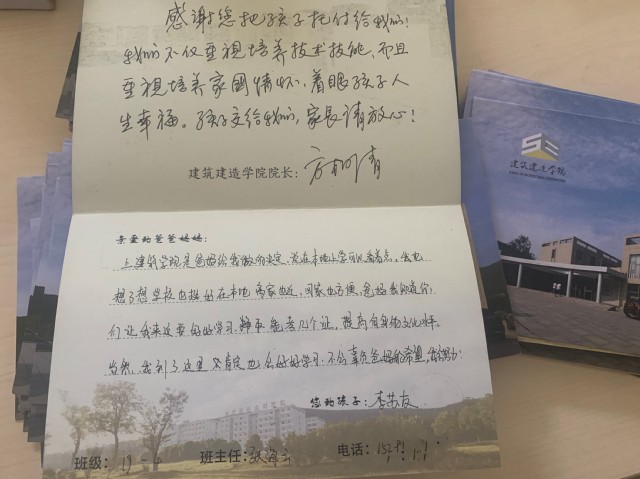 感谢您把孩子托付给我们!
我们不仅重视培养技术技能,而且
重视培养家国情怀、着眼孩子人
生幸福。孩子交给我们,家长请放心!
建筑建造学院院长:
建筑建造学院
亲爱的爸爸妈妈:
上建筑学院是爸妈给我做的决定,说在本地上学可以看着点,我也
想了想学校也挺好在本地离家也近,回家也方便,爸妈我知道你
们让我来这要好好学习,能考几个证,提高自身的文化水平。
当然,我到了这里 肯定也会好好学习 不会辜负爸妈的希望,
您的孩子:李苗友
班级: 19-4 班主任: 电话: